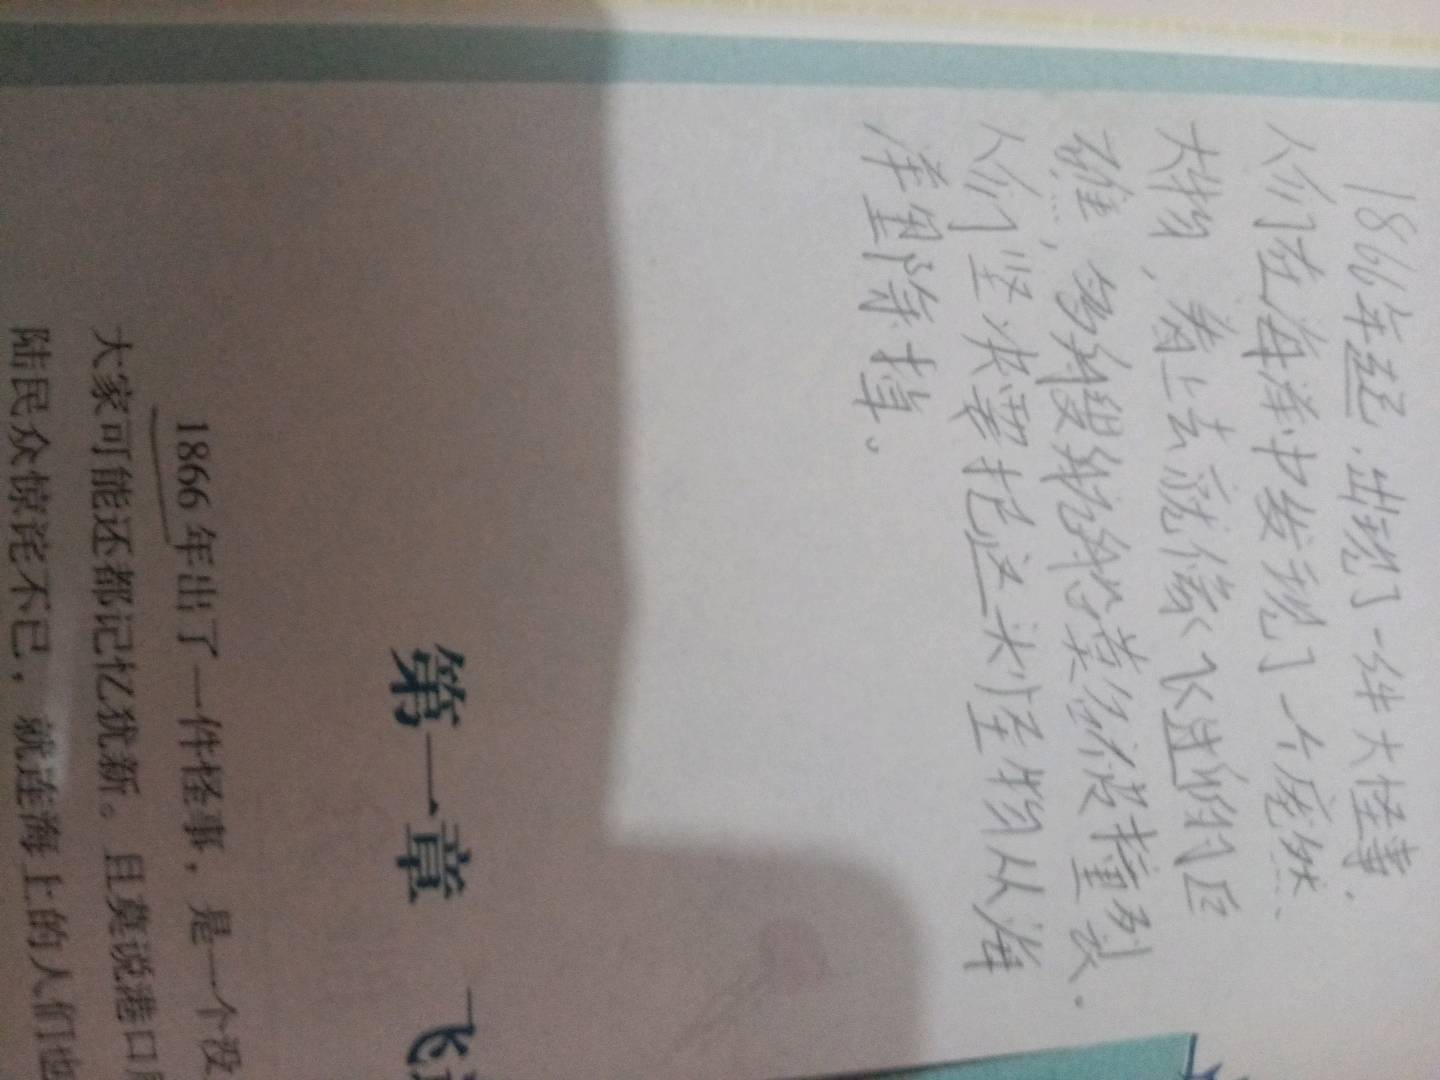 1866年 出现了一件大怪事.
人们在海洋中发现了一个庞然
大物,看上去就像飞逝的巨
礁, 多艘船莫名被撞裂.
人们坚决要把这头怪物从海
洋里除掉。
第一章 飞
1866年出了一件怪事,是一个没
大家可能还都记忆犹新。且莫说港口
陆民众惊诧不已,就连海上的人们也